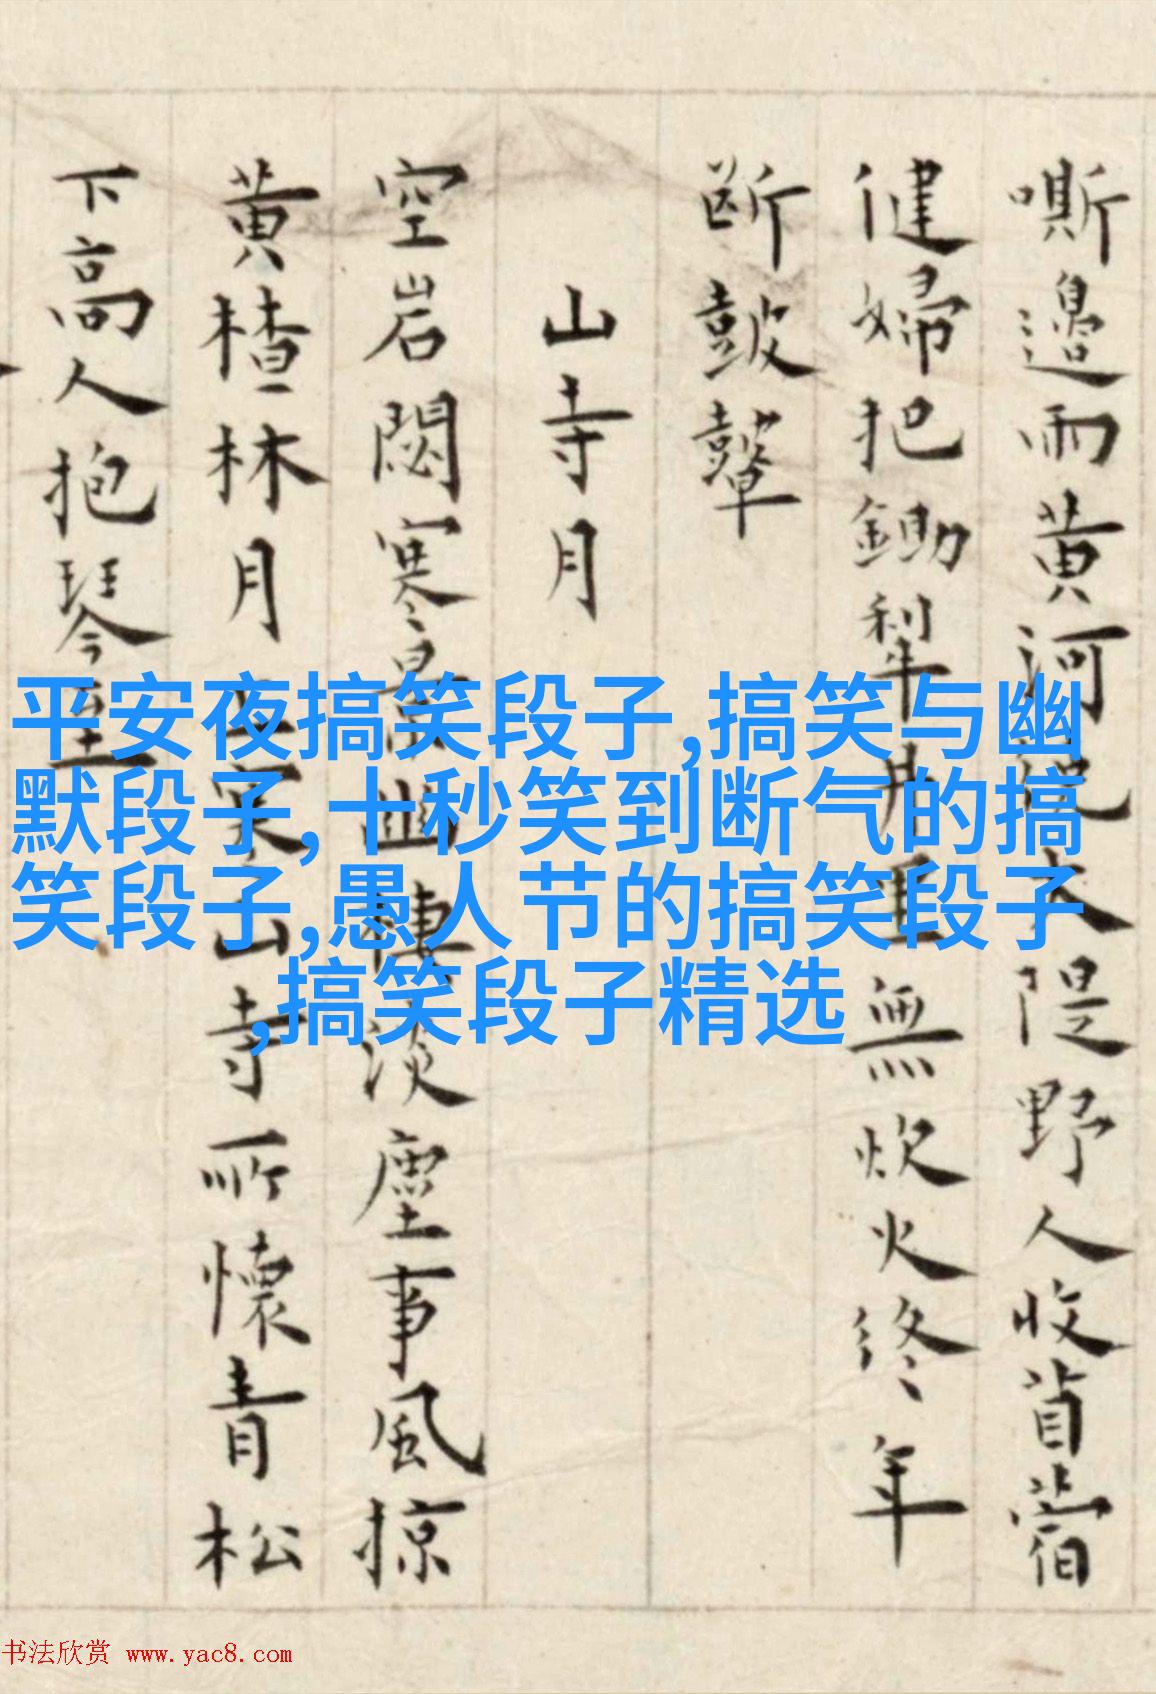 嘶邊雨黄河大隄野人收苜蓿
健婦把鋤犁井無炊火終年
斷皷鼙
山寺月
空岩閟寒景幽棲淡塵事風掠
黄楂林月上山寺所懷青松
下高人抱琴至
平安夜搞笑段子,搞笑与幽
默段子,十秒笑到断气的搞
笑段子,愚人节的搞笑段子
,搞笑段子精选
书法欣赏 www.yac8.com